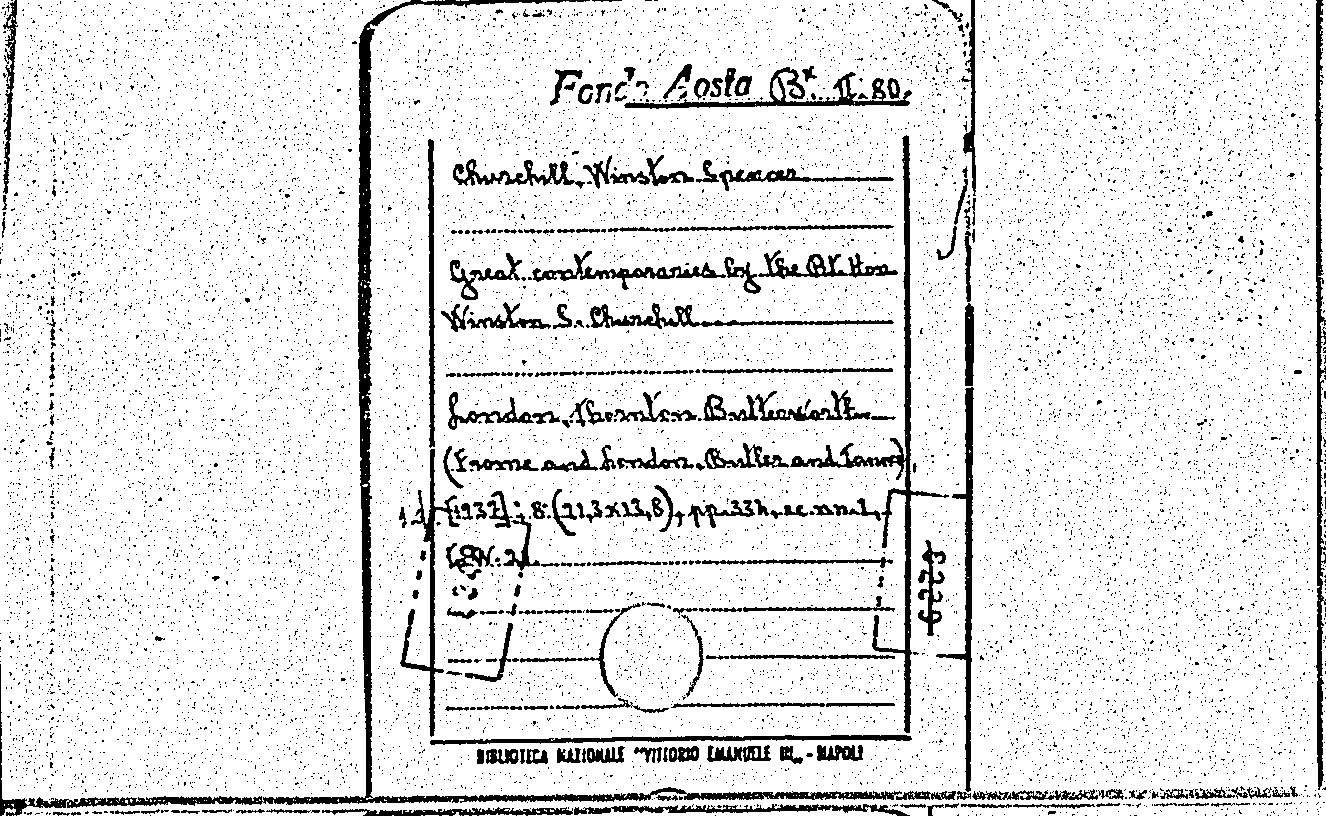 Fondo Aosta B*. II. 80.
Churchill, Winston Spencer
Great contemporaries by the Rt. Hon
Winston S. Churchill
London, Thornton Butterworth
(Frome and London, Butler and Tanner)
[1937], 8° (21,3x13,8), pp. 334, nn. 1,
BIBLIOTECA NAZIONALE "VITTORIO EMANUELE III" - NAPOLI